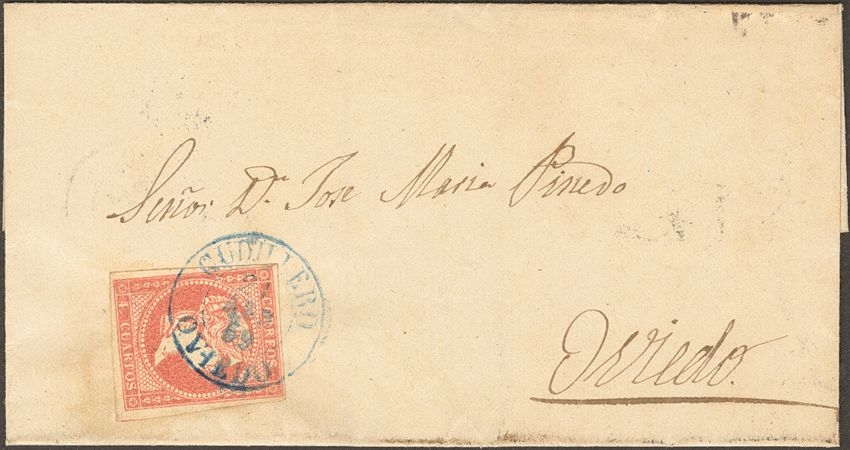 Señor Dn Jose Maria Pinedo
Oviedo.
CUDILLERO
OVIEDO
CORREOS
4 CUARTOS